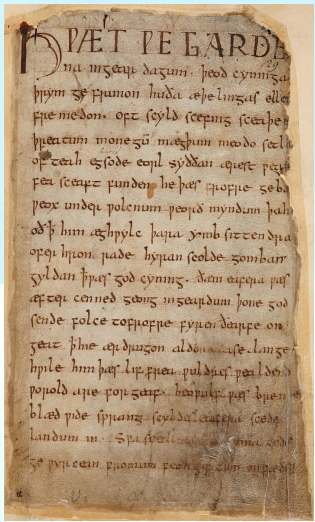 HǷÆT ǷE GARDE
na ingear dagum. þeod cyninga
þrym ge frunon huða æþelingas elle
fre medon. oft scyld scefing sceaþe
þreatum monegū mægþum meodo setla
of teah egsode eorl syððan ærest ƿear
fea sceaft funden he þæs frofre geba
ƿeox under ƿolcnum ƿeorð myndum þah
oð ꝥ him æghƿylc þara ymb sittendra
ofer hron rade hyran scolde gomban
gyldan ꝥ ƿæs god cyning. ðæm eafera ƿæs
æfter cenned geong ingeardum þone god
sende folce tofrofre fyren ðearfe on
geat ꝥ hie ær drugon aldor ase. lange
hƿile him þæs lif frea ƿuldres ƿealdend
ƿorold are forgeaf. beoƿulf ƿæs breme
blæd ƿide sprang scyldes eafera scede
landum in. Sƿa sceal guma gode
ge ƿyrcean fromum feoh giftum on fæder